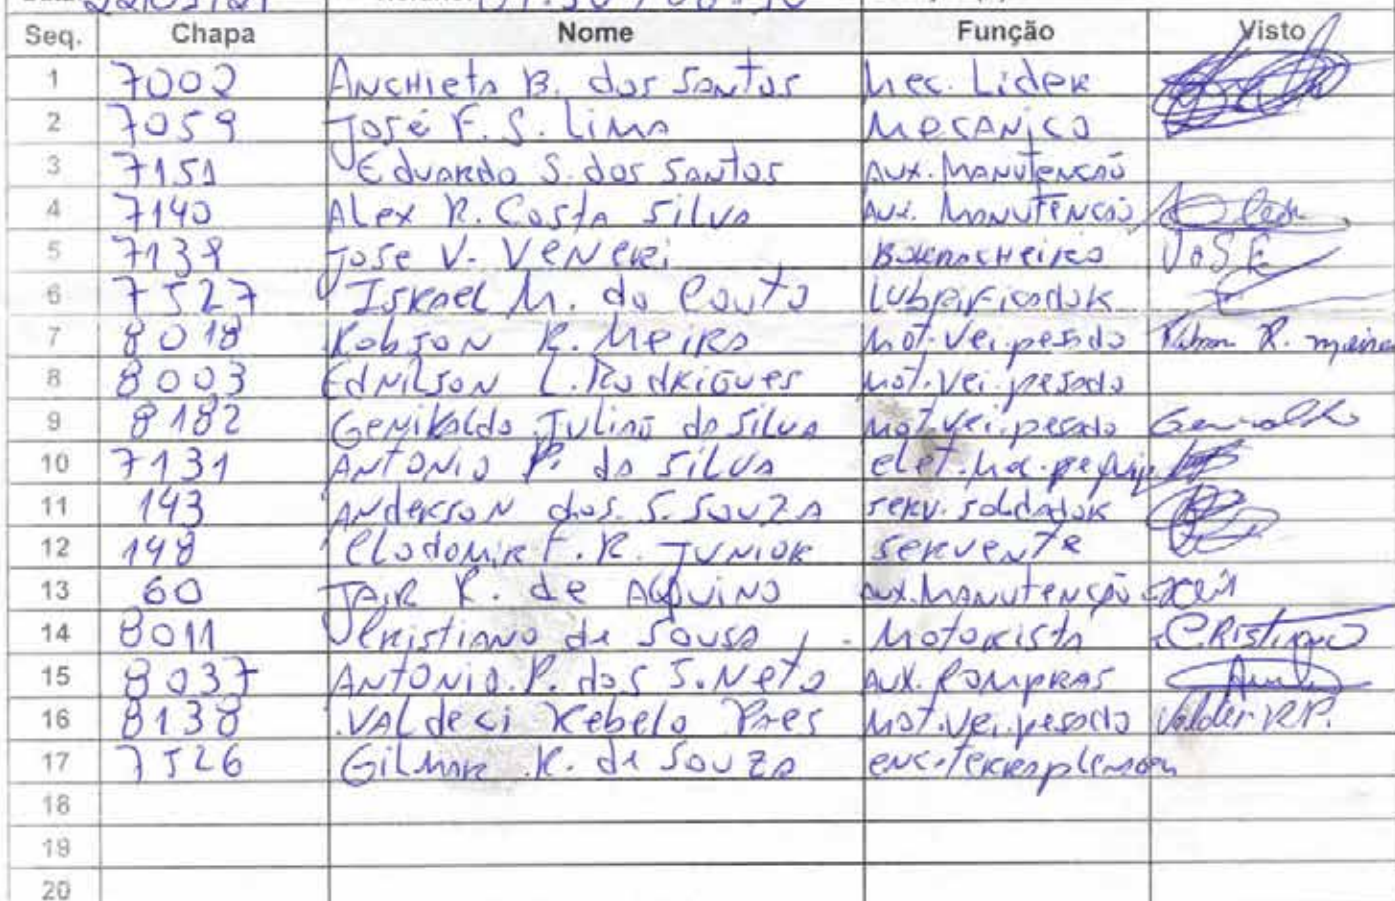 Seq. Chapa Nome Função Visto
1 7002 Anchieta B. dos Santos Mec. Lider
2 7059 José F. S. Lima Mecanico
3 7151 Eduardo S. dos Santos Aux. Manutenção
4 7140 Alex R. Costa Silva Aux. Manutenção
5 7138 Jose V. Veneri Borracheiro José
6 7527 Israel M. do Couto Lubrificador
7 8018 Robson R. Meira Mot. Vei. pesado Robson R. meira
8 8003 Ednilson L. Rodrigues Mot. Vei. pesado
9 8182 Genivaldo Julião da Silva Mot. Vei. pesado
10 7131 Antonio P. da Silva elet.
11 143 Anderson dos S. Souza serv. soldador
12 148 Clodomir F. R. Junior servente
13 60 Jair R. de Aquino Aux. Manutenção
14 8011 Cristiano de Sousa Motorista Cristiano
15 8037 Antonio P. dos S. Neto Aux. Compras
16 8138 Valdeci Rebelo Paes Mot. Vei. pesado R.P.
17 7526 Gilmar R. de Souza
18
19
20